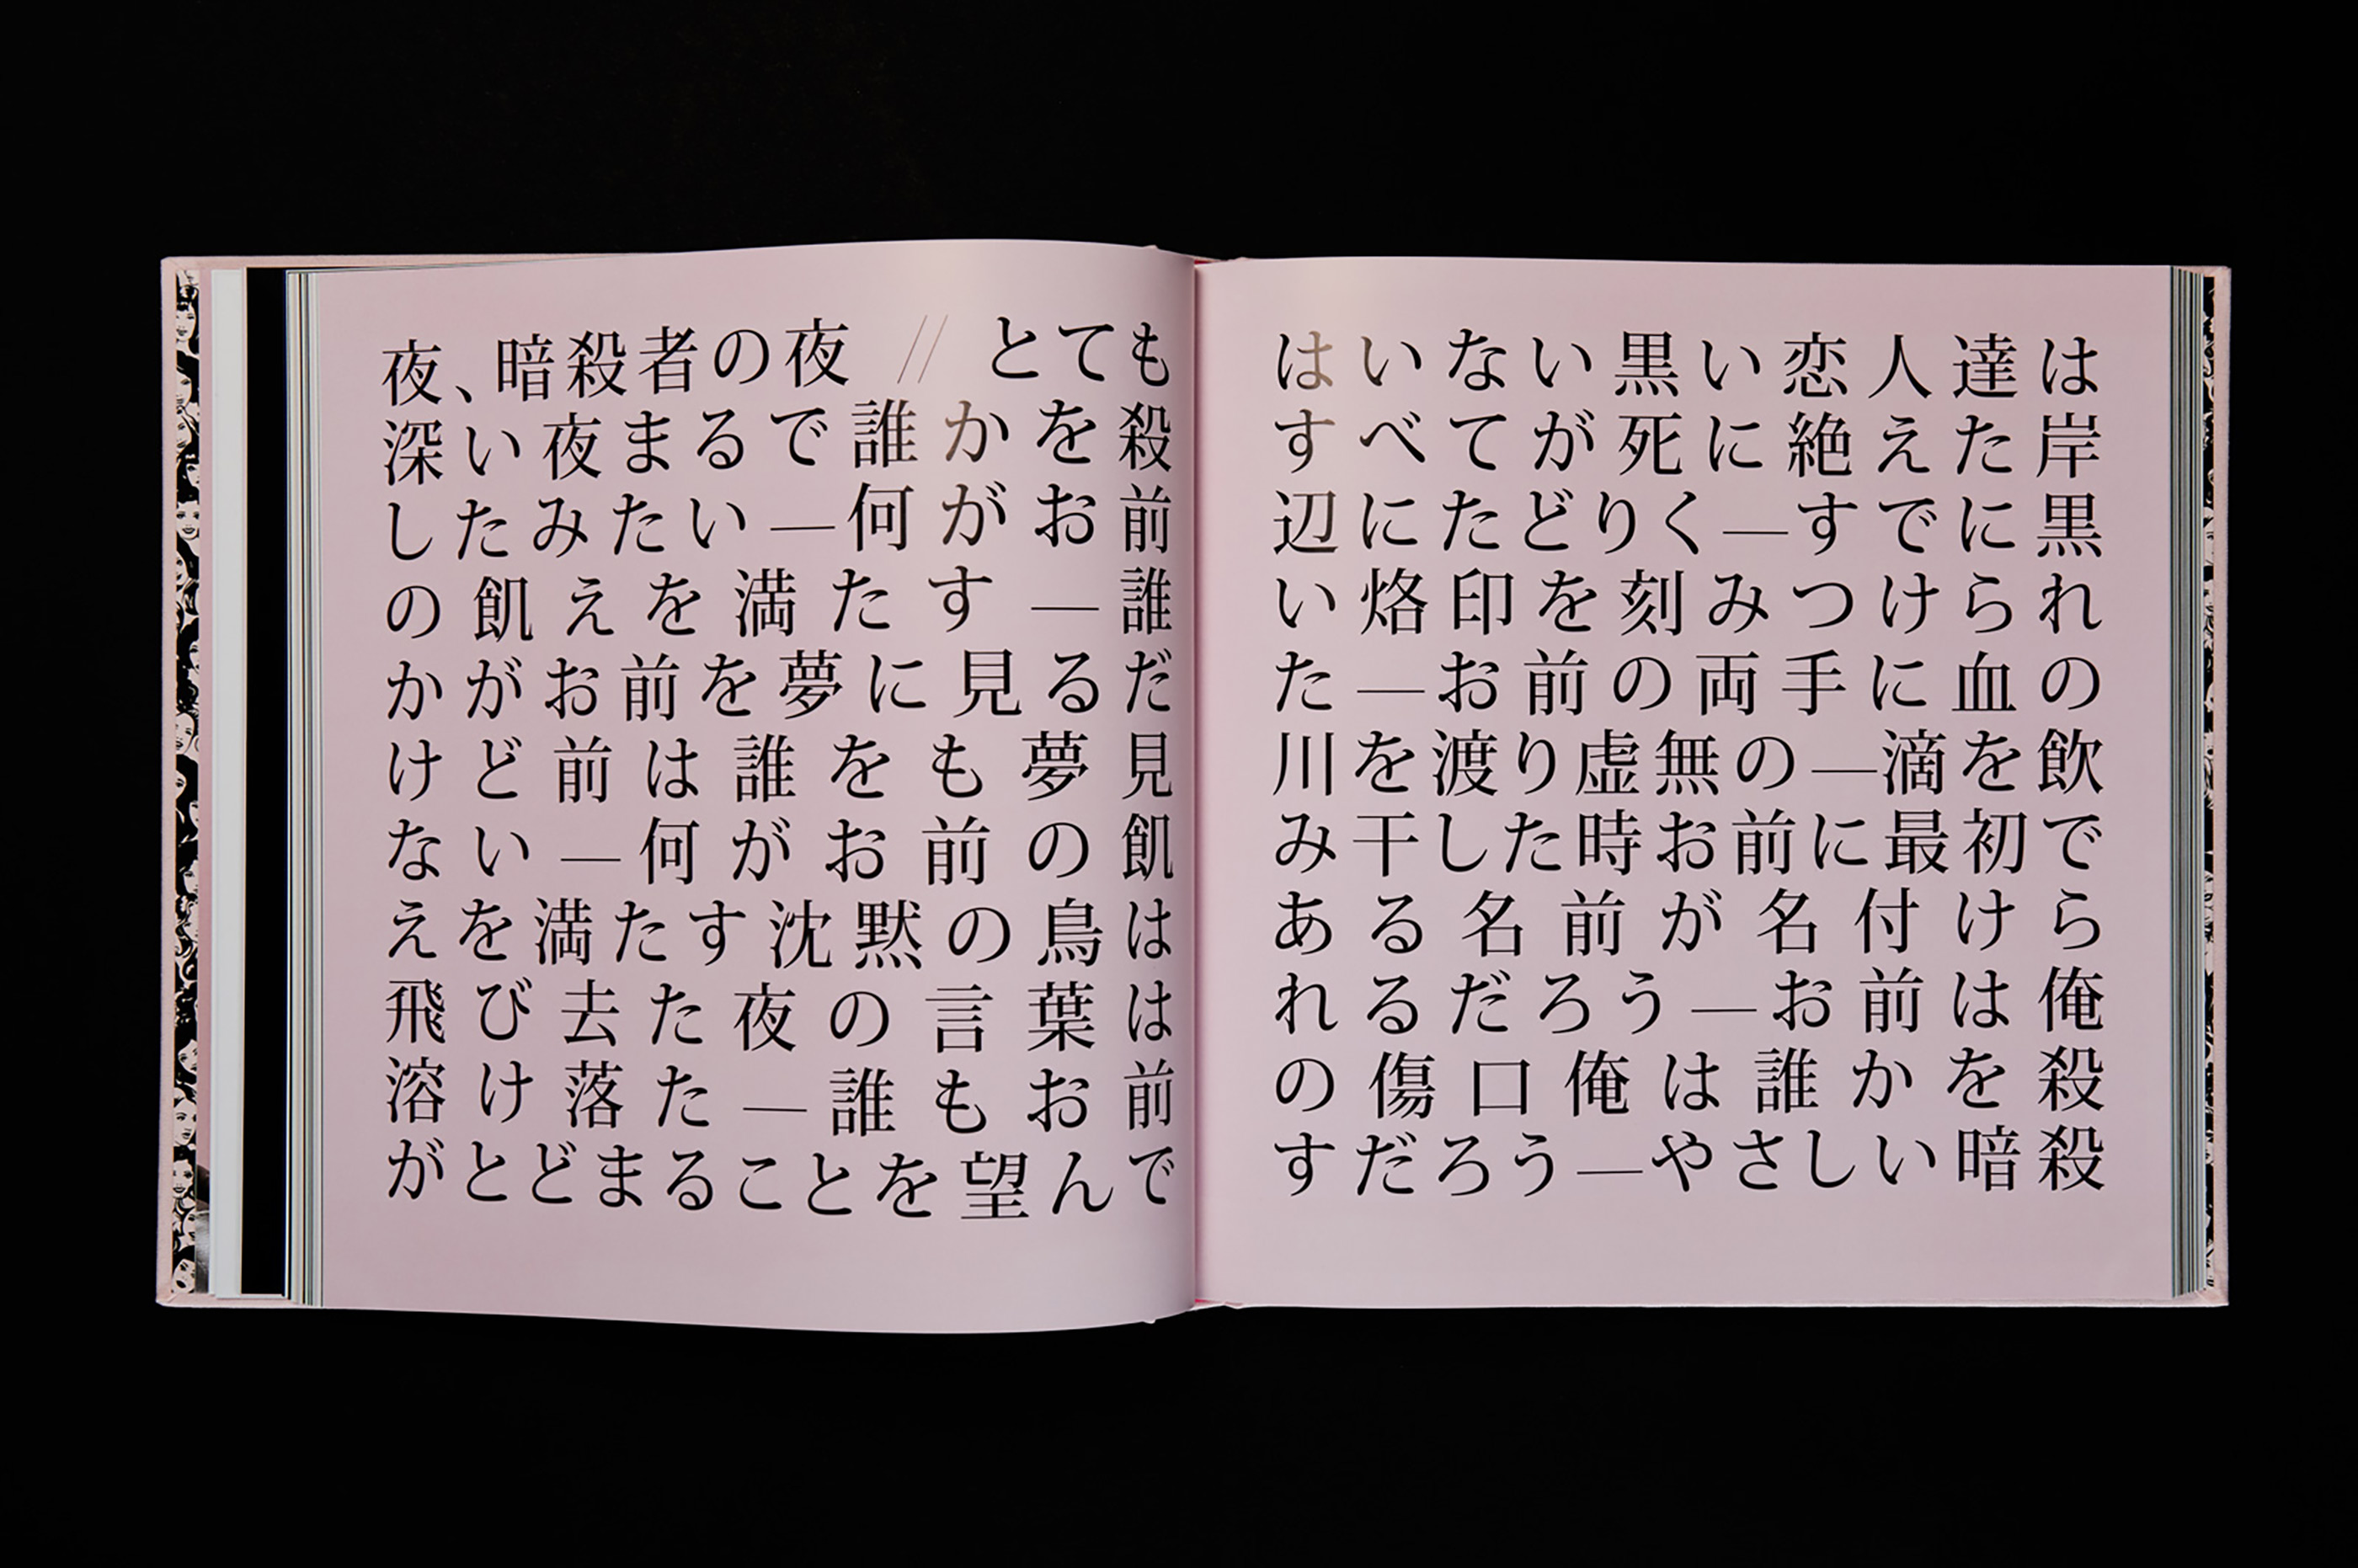 夜、暗殺者の夜 // とても
深い夜まるで誰かを殺
したみたい—何がお前
の飢えを満たす—誰
かがお前を夢に見るだ
けど前は誰をも夢見
ない—何がお前の飢
えを満たす沈黙の鳥は
飛び去た夜の言葉は
溶け落た—誰もお前
がとどまることを望んで
はいない黒い恋人達は
すべてが死に絶えた岸
辺にたどりく—すでに黒
い烙印を刻みつけられ
た—お前の両手に血の
川を渡り虚無の—滴を飲
み干した時お前に最初で
ある名前が名付けら
れるだろう—お前は俺
の傷口俺は誰かを殺
すだろう—やさしい暗殺